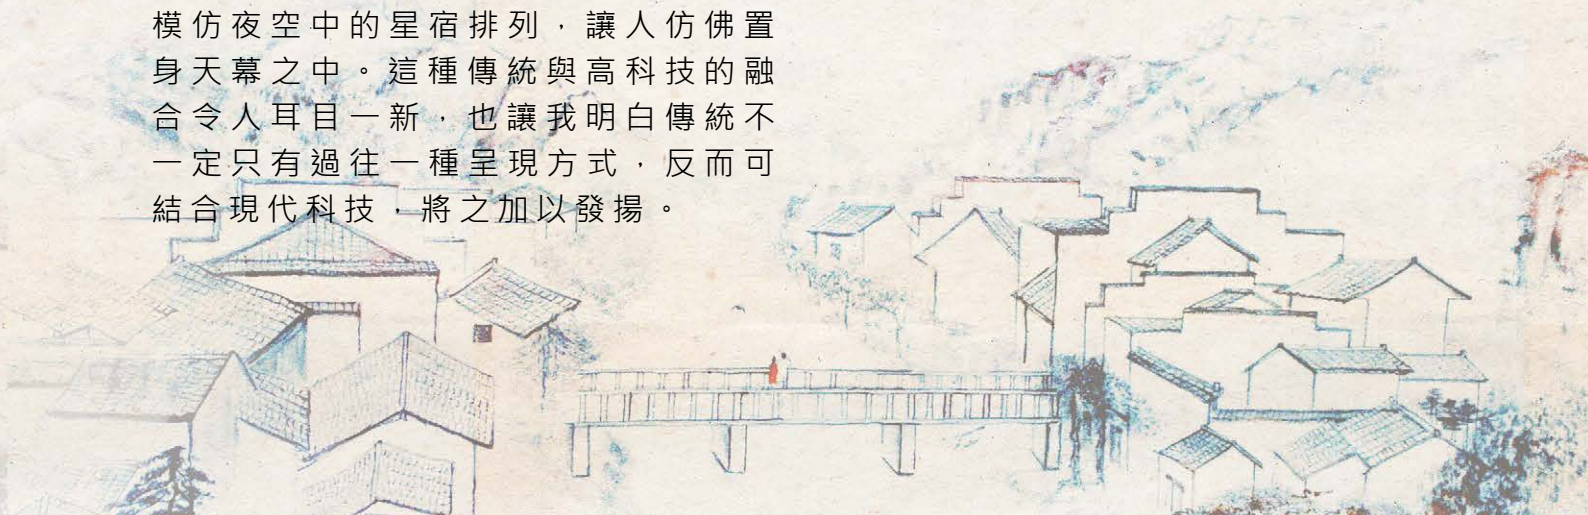 模仿夜空中的星宿排列，讓人仿佛置
身天幕之中。這種傳統與高科技的融
合令人耳目一新，也讓我明白傳統不
一定只有過往一種呈現方式，反而可
結合現代科技，將之加以發揚。